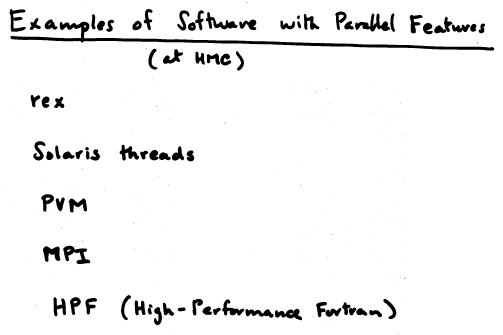 Examples of Software with Parallel Features
(at HMC)
rex
Solaris threads
PVM
MPI
HPF (High-Performance Fortran)